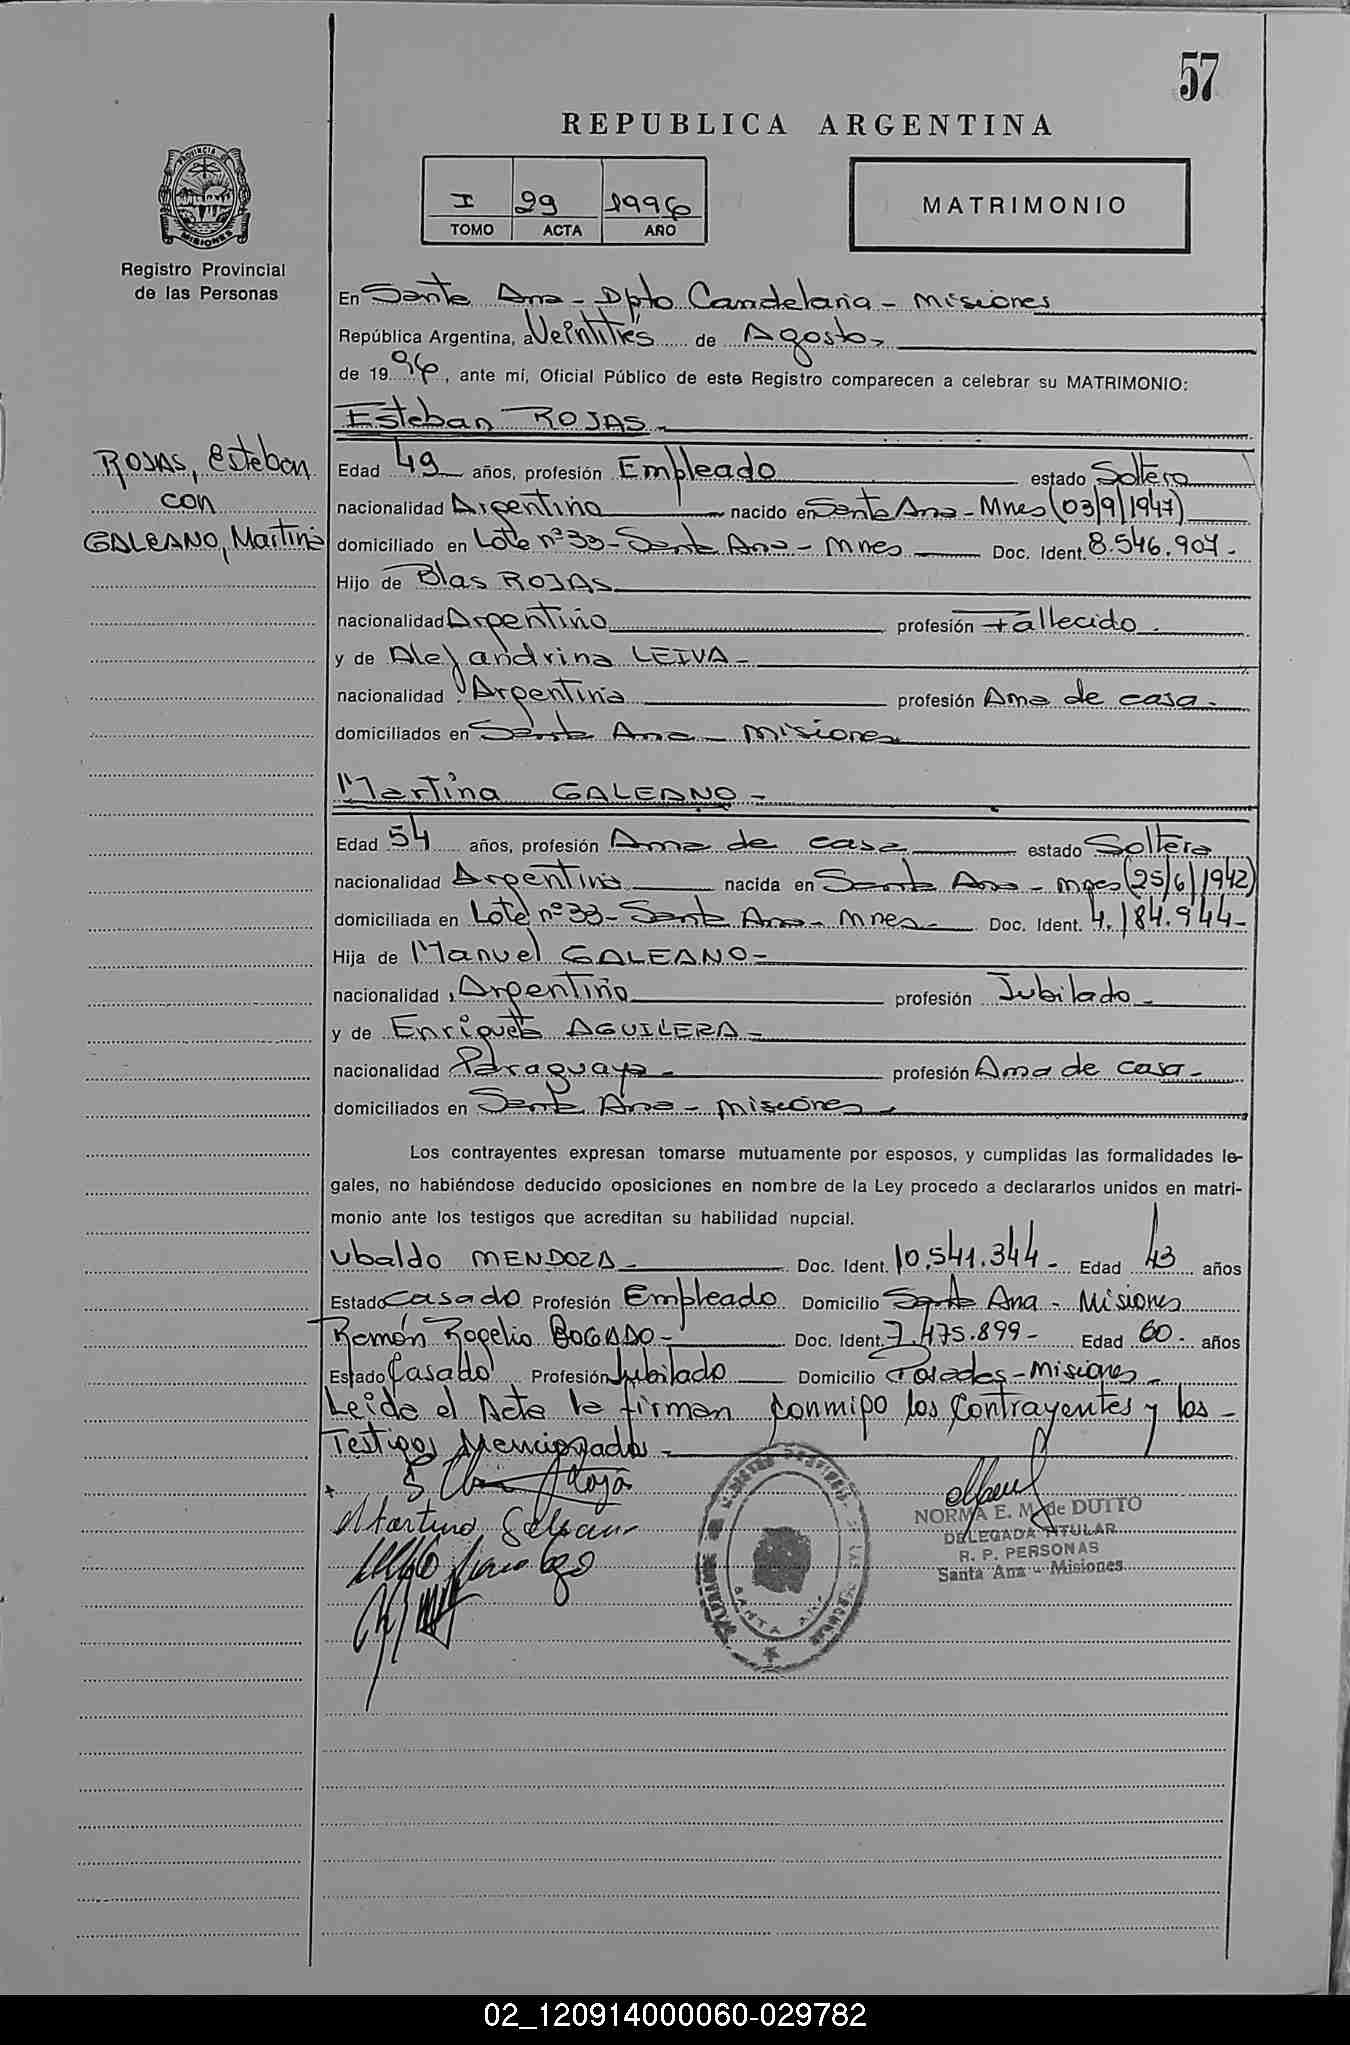 57
REPUBLICA ARGENTINA
I 29 1996
TOMO ACTA AÑO
MATRIMONIO
PROVINCIA DE MISIONES
Registro Provincial
de las Personas
ROJAS, Esteban
con
GALEANO, Martina
En Santa Ana - Dpto Candelaria - Misiones
República Argentina, a Veintitrés de Agosto -
de 1996, ante mí, Oficial Público de este Registro comparecen a celebrar su MATRIMONIO:
Esteban ROJAS -
Edad 49 años, profesión Empleado estado Soltero
nacionalidad Argentina nacido en Santa Ana - Mnes (03/9/1947)
domiciliado en Lote nº 33 - Santa Ana - Mnes Doc. Ident. 8.546.907 -
Hijo de Blas ROJAS
nacionalidad Argentina profesión Fallecido -
y de Alejandrina LEIVA -
nacionalidad Argentina profesión Ama de casa -
domiciliados en Santa Ana - Misiones
Martina GALEANO -
Edad 54 años, profesión Ama de casa estado Soltera
nacionalidad Argentina nacida en Santa Ana - Mnes (25/6/1942)
domiciliada en Lote nº 33 - Santa Ana - Mnes - Doc. Ident. 4.184.944 -
Hija de Manuel GALEANO -
nacionalidad Argentino profesión Jubilado -
y de Enriqueta AGUILERA -
nacionalidad Paraguaya - profesión Ama de casa -
domiciliados en Santa Ana - Misiones -
Los contrayentes expresan tomarse mutuamente por esposos, y cumplidas las formalidades le-
gales, no habiéndose deducido oposiciones en nombre de la Ley procedo a declararlos unidos en matri-
monio ante los testigos que acreditan su habilidad nupcial.
Ubaldo MENDOZA - Doc. Ident. 10.541.344 - Edad 43 años
Estado Casado Profesión Empleado Domicilio Santa Ana - Misiones
Ramón Rogelio BOGADO - Doc. Ident. 7.475.899 - Edad 60 - años
Estado Casado Profesión Jubilado Domicilio Posadas - Misiones -
Leida el Acta la firman conmigo los Contrayentes y los -
Testigos Mencionados -
Rojas
Martina Galeano
NORMA E. M. de DUTTO
DELEGADA TITULAR
R. P. PERSONAS
Santa Ana - Misiones
SANTA ANA
02_120914000060-029782